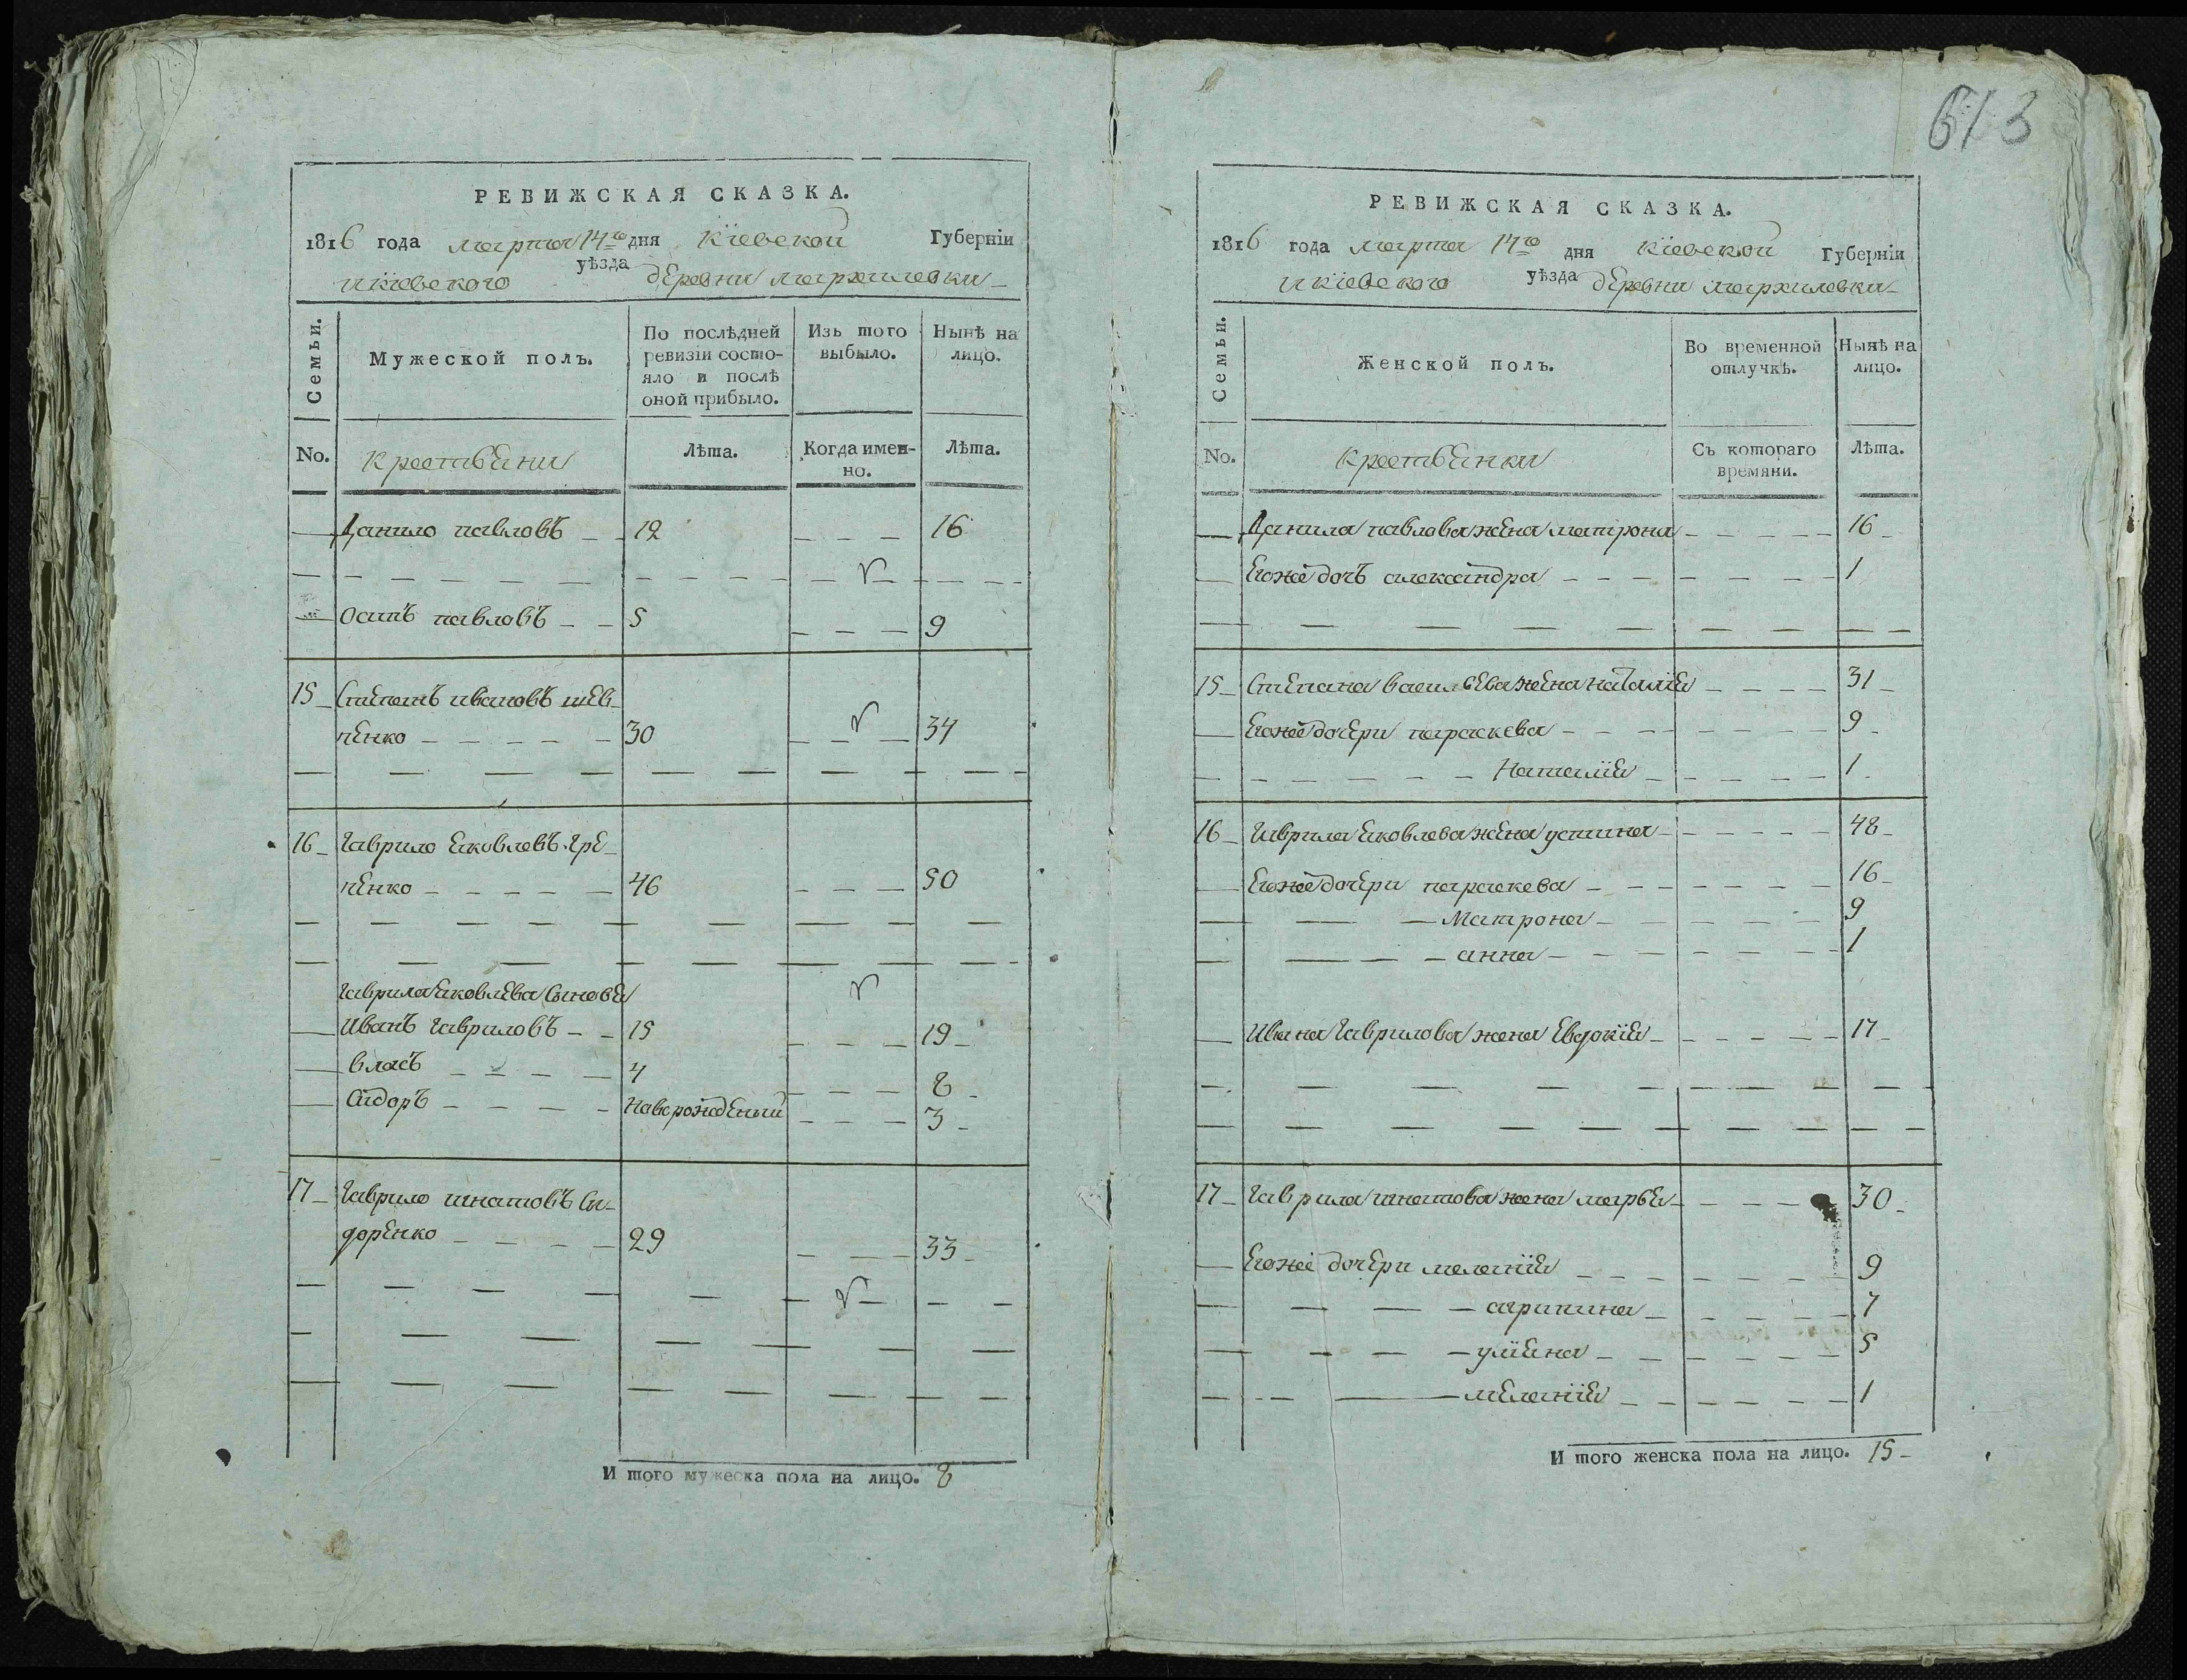 613
РЕВИЖСКАЯ СКАЗКА.
1816 года марта 14го дня Кіевской Губерніи
и кіевского уѣзда деревни мархалевки
Семьи. Мужеской полъ. По послѣдней ревизіи состояло и послѣ оной прибыло. Изъ того выбыло. Нынѣ на лицо.
No. крестьяни Лѣта. Когда именно. Лѣта.
Данило павловъ 12 16
Осипъ павловъ 5 9
15 Степанъ ивановъ шев
ченко 30 34
16 Гаврило Яковлевъ
ненко 46 50
Гаврила Яковлева сыновья
Иванъ Гавриловъ 15 19
Власъ 4 8
Сидоръ новорожденый 3
17 Гаврило игнатовъ Си
доренко 29 33
И того мужеска пола на лицо. 8
РЕВИЖСКАЯ СКАЗКА.
1816 года марта 14го дня кіевской Губерніи
и кіевского уѣзда деревни мархалевки
Семьи. Женской полъ. Во временной отлучкѣ. Нынѣ на лицо.
No. крестьянки Съ котораго времяни. Лѣта.
Данила павлова жена матрона 16
Егоже дочь александра 1
15 Степана васильева жена наталия 31
Егоже дочери параскева 9
Наталия 1
16 Гаврила Яковлева жена устина 48
Егоже дочери параскева 16
Матрона 9
анна 1
Ивана Гаврилова жена Евдокия 17
17 Гаврила игнатова жена марья 30
Егоже дочери мелания 9
агрипина 7
улияна 5
мелания 1
И того женска пола на лицо. 15